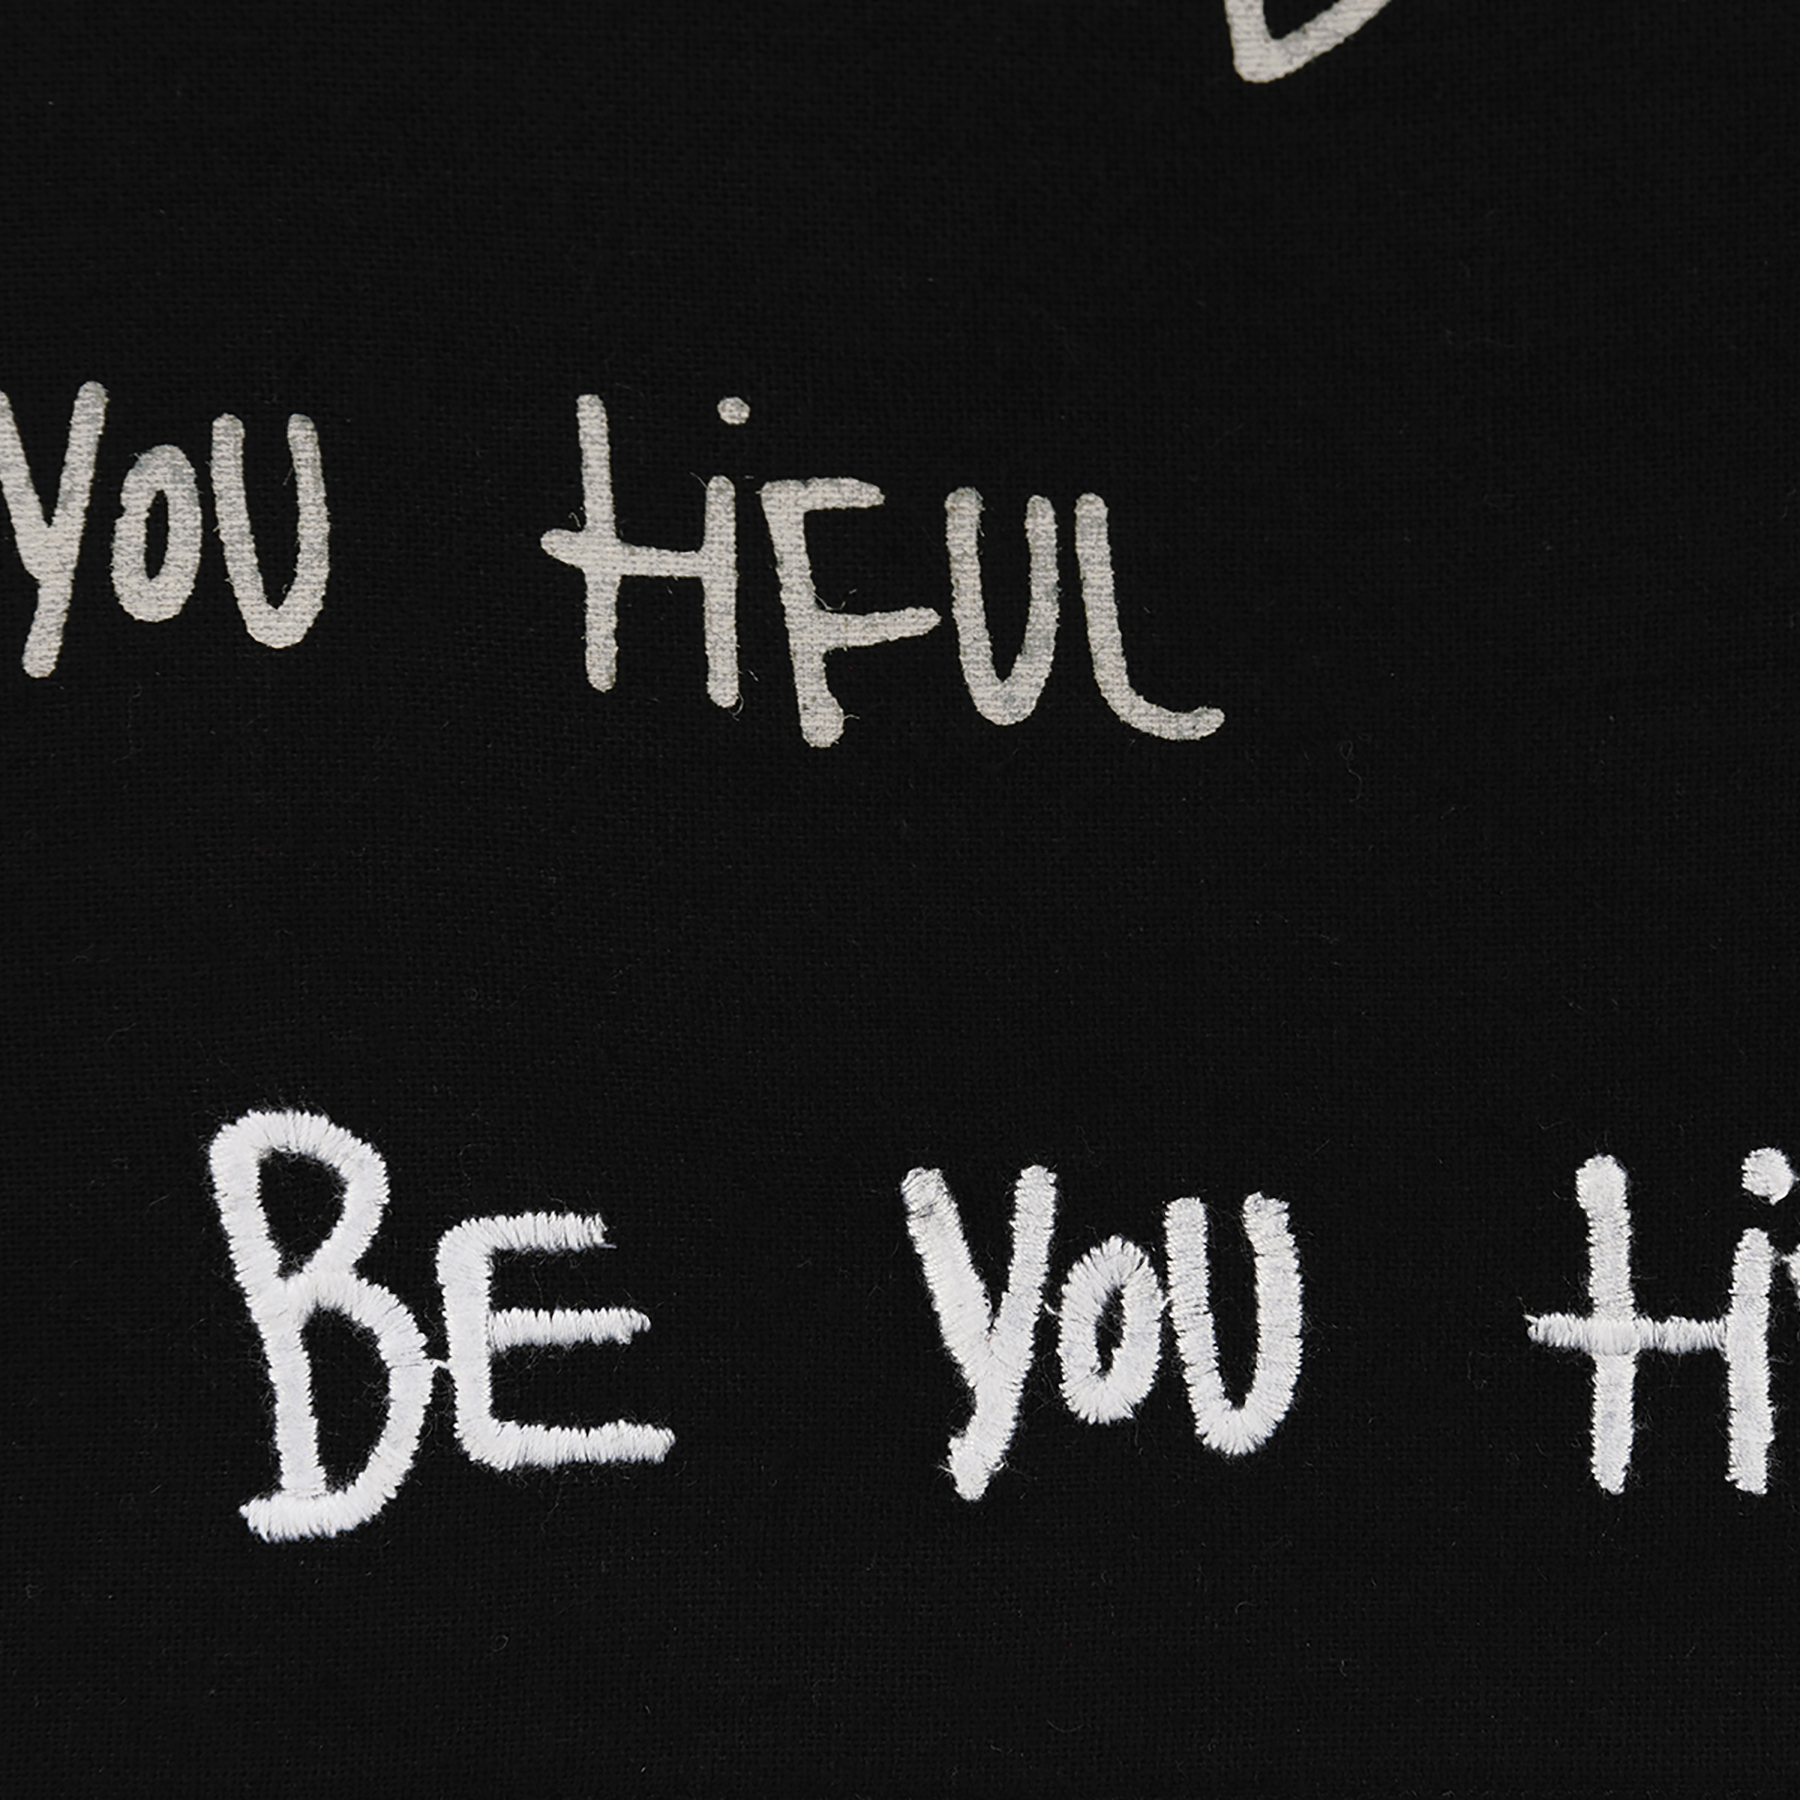 YOU HiFUL
BE YOU Hi